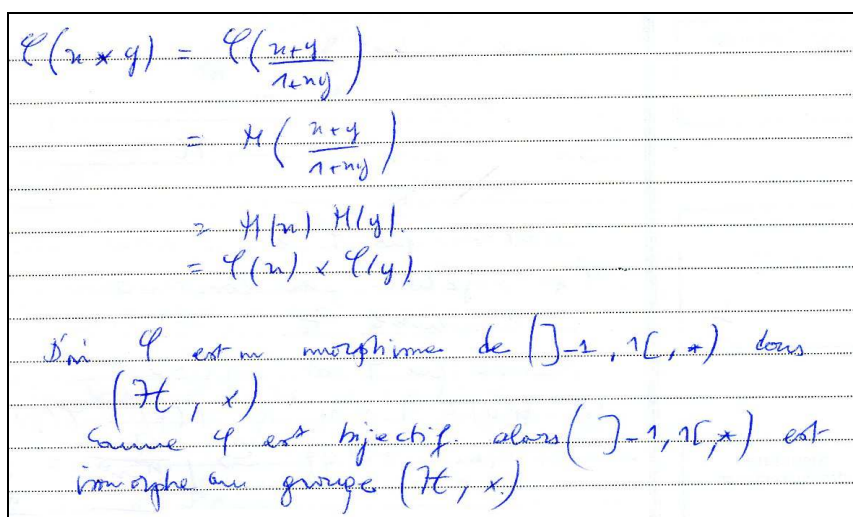 φ(x * y) = φ(x+y / 1+xy)
= M(x+y / 1+xy)
= M(x) M(y).
= φ(x) × φ(y)
D'où φ est un morphisme de (]-1, 1[, *) dans
(ℋ, ×)
Comme φ est bijectif. alors (]-1, 1[, *) est
isomorphe au groupe (ℋ, ×)